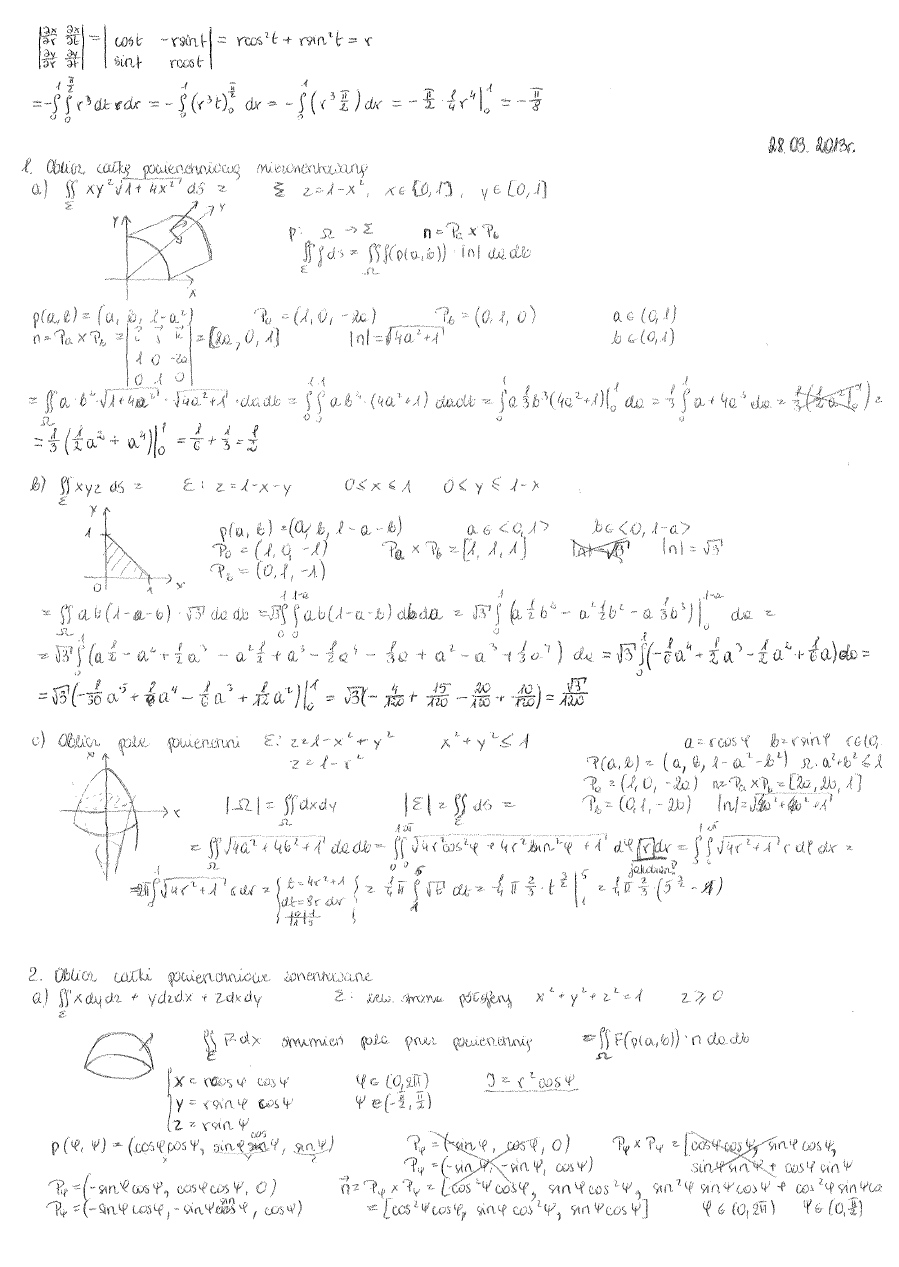 |∂x/∂r ∂x/∂t; ∂y/∂r ∂y/∂t| = |cost -rsint; sint rcost| = rcos²t + rsin²t = r
= -∫₀¹ ∫₀^{π/2} r³ dt dr = -∫₀¹ (r³t)|₀^{π/2} dr = -∫₀¹ (r³ π/2) dr = -π/2 · 1/4 r⁴|₀¹ = -π/8
28.03.2013r.
1. Oblicz całkę powierzchniową niezorientowaną
a) ∬_Σ xy²√(1+4x²) dS = Σ z=1-x², x∈[0,1], y∈[0,1]
y y
p: Ω → Σ n = Pa × Pb
∬_Σ f ds = ∬_Ω f(p(a,b)) · |n| da db
x
p(a,b) = (a, b, 1-a²) Pa = (1, 0, -2a) Pb = (0, 1, 0) a∈(0,1)
n = Pa × Pb = |i j k; 1 0 -2a; 0 1 0| = [2a, 0, 1] |n| = √(4a²+1) b∈(0,1)
= ∬_Ω a·b²·√(1+4a²)·√(4a²+1) · da db = ∫₀¹∫₀¹ ab²·(4a²+1) da db = ∫₀¹ a 1/3 b³(4a²+1)|₀¹ da = 1/3 ∫₀¹ a+4a³ da =
= 1/3 (1/2 a² + a⁴)|₀¹ = 1/6 + 1/3 = 1/2
b) ∬_Σ xyz ds = Σ: z=1-x-y 0≤x≤1 0≤y≤1-x
y
1
p(a,b) = (a, b, 1-a-b) a∈<0,1> b∈<0,1-a>
Pa = (1, 0, -1) Pa × Pb = [1, 1, 1] |n| = √3
Pb = (0, 1, -1)
0 1 x
= ∬_Ω ab(1-a-b)·√3 da db = √3 ∫₀¹∫₀^{1-a} ab(1-a-b) db da = √3 ∫₀¹ (a 1/2 b² - a² 1/2 b² - a 1/3 b³)|₀^{1-a} da =
= √3 ∫₀¹ (a 1/2 - a² + 1/2 a³ - a² 1/2 + a³ - 1/2 a⁴ - 1/3 a + a² - a³ + 1/3 a⁴) da = √3 ∫₀¹ (-1/6 a⁴ + 1/2 a³ - 1/2 a² + 1/6 a) da =
= √3 (-1/30 a⁵ + 1/8 a⁴ - 1/6 a³ + 1/12 a²)|₀¹ = √3 (-4/120 + 15/120 - 20/120 + 10/120) = √3/120
c) Oblicz pole powierzchni Σ: z=1-x²+y² x²+y²≤1 a=rcosφ b=rsinφ r∈(0,
z=1-r² P(a,b) = (a, b, 1-a²-b²) Ω: a²+b²≤1
Pa = (1, 0, -2a) n = Pa × Pb = [2a, 2b, 1]
|Ω| = ∬_Ω dxdy |Σ| = ∬_Σ ds = Pb = (0, 1, -2b) |n| = √(4a²+4b²+1)
x
= ∬_Ω √(4a²+4b²+1) da db = ∫₀¹∫₀^{2π} √(4r²cos²φ + 4r²sin²φ + 1) dφ r dr = ∫₀¹∫₀^{2π} √(4r²+1) r dφ dr =
jakobian?
= 2π ∫₀¹ √(4r²+1) r dr = {t=4r²+1; dt=8r dr} = 1/4 π ∫₁⁵ √t dt = 1/4 π 2/3 · t^{3/2}|₁⁵ = 1/4 π 2/3 · (5^{3/2} - 1)
2. Oblicz całki powierzchniowe zorientowane
a) ∬_Σ xdydz + ydzdx + zdxdy Σ: zew. strona półsfery x²+y²+z²=1 z≥0
∬_Σ F·dx strumień pola przez powierzchnię = ∬_Ω F(p(a,b))·n da db
x = rcosφ cosψ φ∈(0,2π) J = r²cosψ
y = rsinφ cosψ ψ∈(-π/2, π/2)
z = rsinψ
p(φ,ψ) = (cosφcosψ, sinφcosψ, sinψ) Pφ = (-sinφ, cosφ, 0) Pφ × Pψ = [cosφcosψ, sinφcosψ,
Pψ = (-sinψ, -sinψ, cosψ) sinφsinψ + cosφsinψ
Pφ = (-sinφcosψ, cosφcosψ, 0) n = Pφ × Pψ = [cos²ψcosφ, sinφcos²ψ, sin²φsinψcosψ + cos²φsinψco
Pψ = (-sinψcosφ, -sinψsinφ, cosψ) = [cos²ψcosφ, sinφcos²ψ, sinψcosψ] φ∈(0,2π) ψ∈(0,π/2)